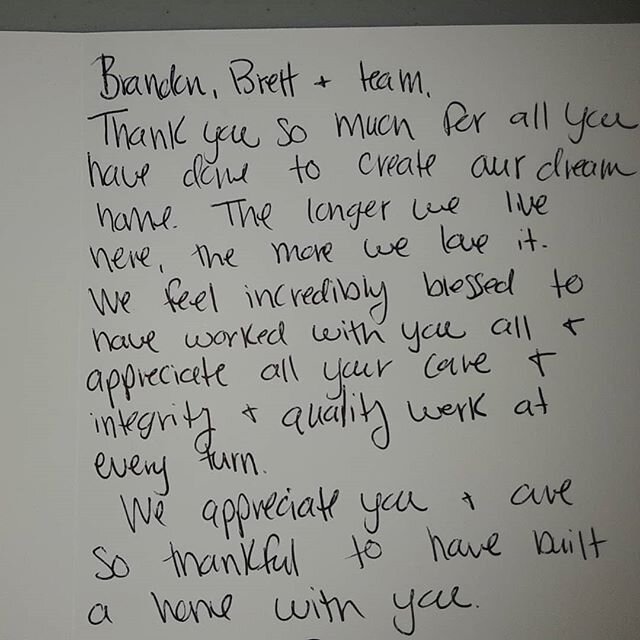 Brandon, Brett + team,
Thank you so much for all you
have done to create our dream
home. The longer we live
here, the more we love it.
We feel incredibly blessed to
have worked with you all +
appreciate all your care +
integrity + quality work at
every turn.
We appreciate you + are
so thankful to have built
a home with you.